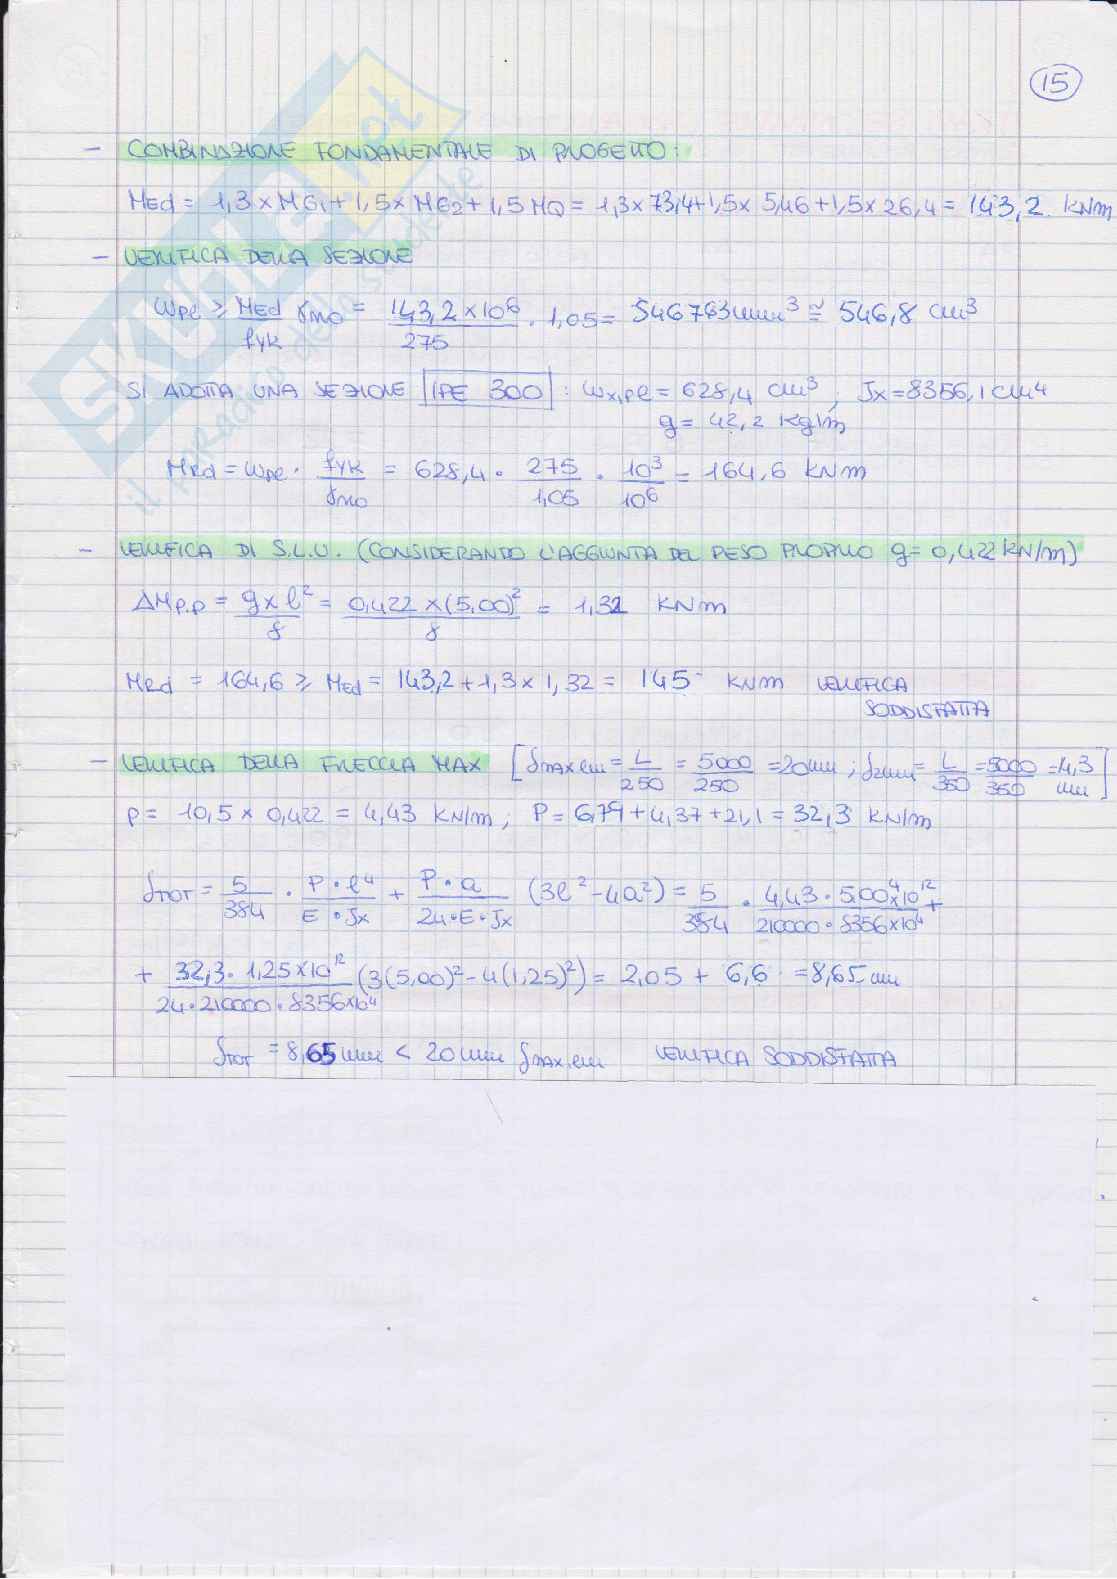 15
- COMBINAZIONE FONDAMENTALE DI PROGETTO:
MEd = 1,3 × MG1 + 1,5 × MG2 + 1,5 MQ = 1,3 × 73,4 + 1,5 × 5,46 + 1,5 × 26,4 = 143,2 KNm
- VERIFICA DELLA SEZIONE
Wpl ≥ MEd/fyk γM0 = 143,2 × 10^6/275 · 1,05 = 546763 mm³ ≅ 546,8 cm³
SI ADOTTA UNA SEZIONE IPE 300 : Wx,pl = 628,4 cm³ ; Jx = 8356,1 cm4
g = 42,2 Kg/m
MRd = Wpl · fyk/γM0 = 628,4 · 275/1,05 · 10³/10^6 = 164,6 KNm
- VERIFICA DI S.L.U. (CONSIDERANDO L'AGGIUNTA DEL PESO PROPRIO g = 0,422 KN/m)
ΔMp.p = g × l²/8 = 0,422 × (5,00)²/8 = 1,32 KNm
MRd = 164,6 ≥ MEd = 143,2 + 1,3 × 1,32 = 145 KNm VERIFICA
SODDISFATTA
- VERIFICA DELLA FRECCIA MAX [δmax em = L/250 = 5000/250 = 20 mm ; δ2 = L/350 = 5000/350 = 4,3 mm]
p = 10,5 × 0,422 = 4,43 KN/m ; P = 6,79 + 4,37 + 21,1 = 32,3 KN/m
δTOT = 5/384 · P · l⁴/E · Jx + P · a/24 · E · Jx (3l² - 4a²) = 5/384 · 4,43 · 5,00⁴ × 10^12/210000 · 8356 × 10⁴ +
+ 32,3 · 1,25 × 10^12/24 · 210000 · 8356 × 10⁴ (3(5,00)² - 4(1,25)²) = 2,05 + 6,6 = 8,65 mm
δTOT = 8,65 mm < 20 mm δmax,em VERIFICA SODDISFATTA